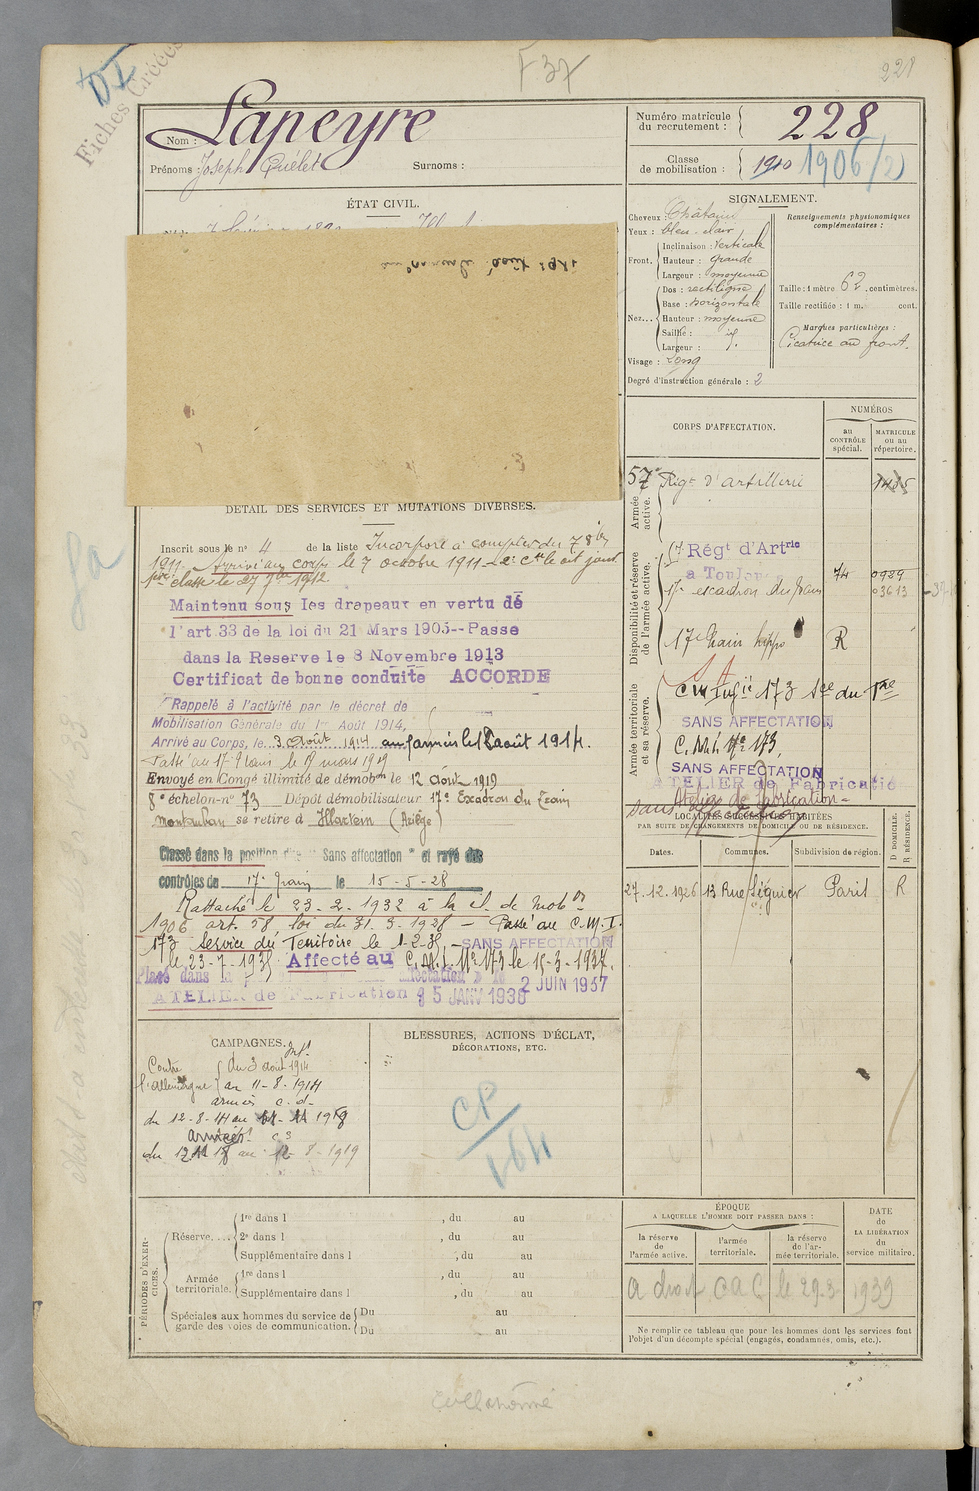 F 37
228
DI
Fiches Créées
Nom : Lapeyre
Prénoms : Joseph Quélet Surnoms :
Numéro matricule du recrutement : 228
Classe de mobilisation : 1910 1906/2
ÉTAT CIVIL.
SIGNALEMENT.
Cheveux : Châtain
Yeux : bleu clair
Front. Inclinaison : Verticale
Hauteur : grande
Largeur : moyenne
Nez... Dos : rectiligne
Base : horizontale
Hauteur : moyenne
Saillie :
Largeur :
Visage : Long
Degré d'instruction générale : 2
Renseignements physionomiques complémentaires :
Taille : 1 mètre 62 centimètres.
Taille rectifiée : 1 m. cent.
Marques particulières :
Cicatrice au front.
DÉTAIL DES SERVICES ET MUTATIONS DIVERSES.
Inscrit sous le n° 4 de la liste Incorporé à compter du 7 8bre
1911. Arrivé au corps le 7 octobre 1911 2e Cl le dit jour
1ère classe le 27 7bre 1912
Maintenu sous les drapeaux en vertu de
l'art. 33 de la loi du 21 Mars 1905--Passe
dans la Reserve le 8 Novembre 1913
Certificat de bonne conduite ACCORDE
Rappelé à l'activité par le décret de
Mobilisation Générale du 1er Août 1914,
Arrivé au Corps, le 3 Août 1914 aux armées le 12 août 1914.
Passé au 17e Train le 17 mars 1919
Envoyé en Congé illimité de démobon le 12 Août 1919
8e échelon-n° 73 Dépôt démobilisateur 17e Escadron du Train
Montauban se retire à Illartein (Ariège)
Classé dans la position dite " Sans affectation " et rayé des
contrôles de 17e Train le 15-5-28
Rattaché le 23-2-1932 à la cl. de mobon
1906 art. 58 loi du 31.3.1928 - Passé au C.M.I.
173 Service du Territoire le 1-2-35 - SANS AFFECTATION
le 23-7-193 Affecté au C.M.I. N° 173 le 15-3-1937.
Placé dans la affectation 2 JUIN 1937
ATELIER de Fabrication 5 JANV 1938
CORPS D'AFFECTATION.
NUMÉROS
au CONTRÔLE spécial.
MATRICULE ou au répertoire.
Armée active.
57e Régt d'artillerie 1435
Disponibilité et réserve de l'armée active.
Régt d'Artrie
à Toulouse
17e escadron du train 74 0929
03613
17e Train hippo R
Armée territoriale et sa réserve.
S A
C M Infie 173 Sce du Tre
SANS AFFECTATION
C. M. I. N° 173
SANS AFFECTATION
ATELIER de Fabricatio
Atelier de fabrication
sans affectation
LOCALITÉS SUCCESSIVES HABITÉES
PAR SUITE DE CHANGEMENTS DE DOMICILE OU DE RÉSIDENCE.
Dates. Communes. Subdivision de région. D DOMICILE. R RÉSIDENCE.
27.12.1926 13 Rue Séguier Paris R
CAMPAGNES.
Contre l'Allemagne du 3 août 1914
au 11-8-1914
armées c.d.
du 12-8-14 au 11-11 1918
du 12 11 18 au 12-8-1919
BLESSURES, ACTIONS D'ÉCLAT,
DÉCORATIONS, ETC.
CP
164
PÉRIODES D'EXERCICES.
Réserve.... 1re dans l , du au
2e dans l , du au
Supplémentaire dans l , du au
Armée territoriale. 1re dans l , du au
Supplémentaire dans l , du au
Spéciales aux hommes du service de garde des voies de communication. Du au
Du au
ÉPOQUE
A LAQUELLE L'HOMME DOIT PASSER DANS :
la réserve de l'armée active.
l'armée territoriale.
la réserve de l'armée territoriale.
DATE de LA LIBÉRATION du service militaire.
a droit CAC le 29-3-1939
Ne remplir ce tableau que pour les hommes dont les services font
l'objet d'un décompte spécial (engagés, condamnés, omis, etc.).